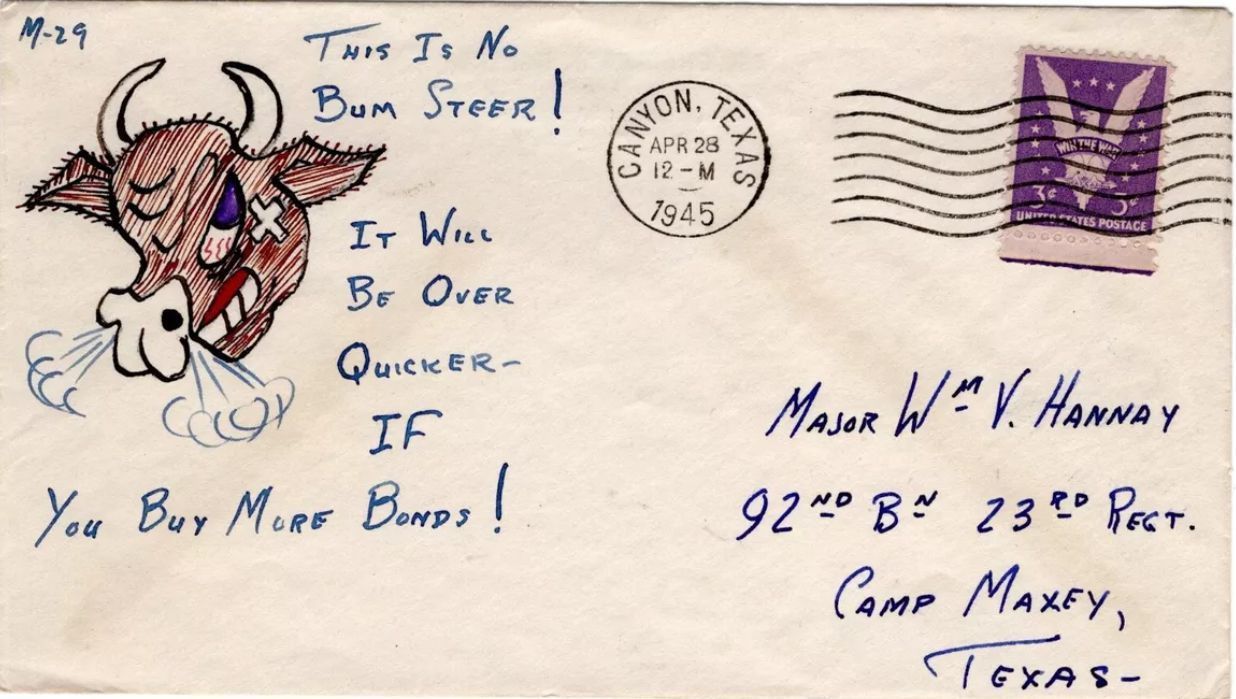 M-29
THIS IS NO
BUM STEER!
IT WILL
BE OVER
QUICKER-
IF
YOU BUY MORE BONDS!
CANYON, TEXAS
APR 28
12-M
1945
WIN THE WAR
3¢ 3¢
UNITED STATES POSTAGE
MAJOR WM V. HANNAY
92ND BN 23RD REGT.
CAMP MAXEY,
TEXAS-